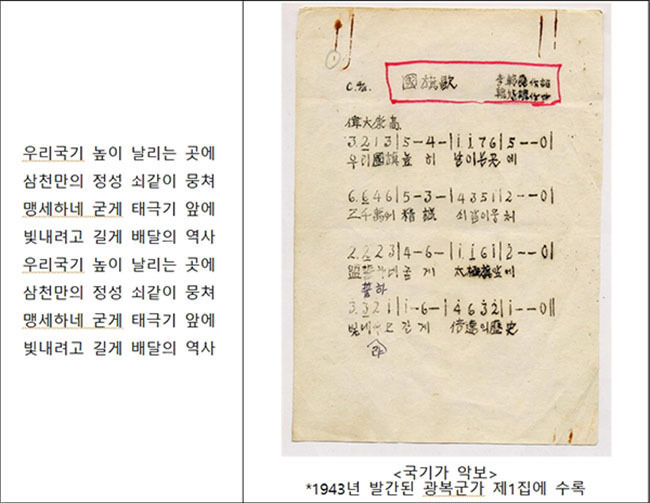 우리국기 높이 날리는 곳에
삼천만의 정성 쇠같이 뭉쳐
맹세하네 굳게 태극기 앞에
빛내려고 길게 배달의 역사
우리국기 높이 날리는 곳에
삼천만의 정성 쇠같이 뭉쳐
맹세하네 굳게 태극기 앞에
빛내려고 길게 배달의 역사
C 4/4
國旗歌
李範奭作詞
韓悠韓作曲
偉大崇高
3. 2 1 3 | 5 - 4 - | i i 7 6 | 5 - - 0 |
우리國旗 높히 날이는곳에
6. 6 4 6 | 5 - 3 - | 4 3 5 1 | 2 - - 0 |
三千萬에 精誠 쇠같이뭉처
2. 2 2 3 | 4 - 6 - | i. i 6 i | 2 - - 0 |
盟誓 게 太極旗앞에
誓하
3. 3 2 i | i - 6 - | 4 6 3 2 | i - - 0 ||
빛내 고 길게 倍達의歷史
라
<국기가 악보>
*1943년 발간된 광복군가 제1집에 수록